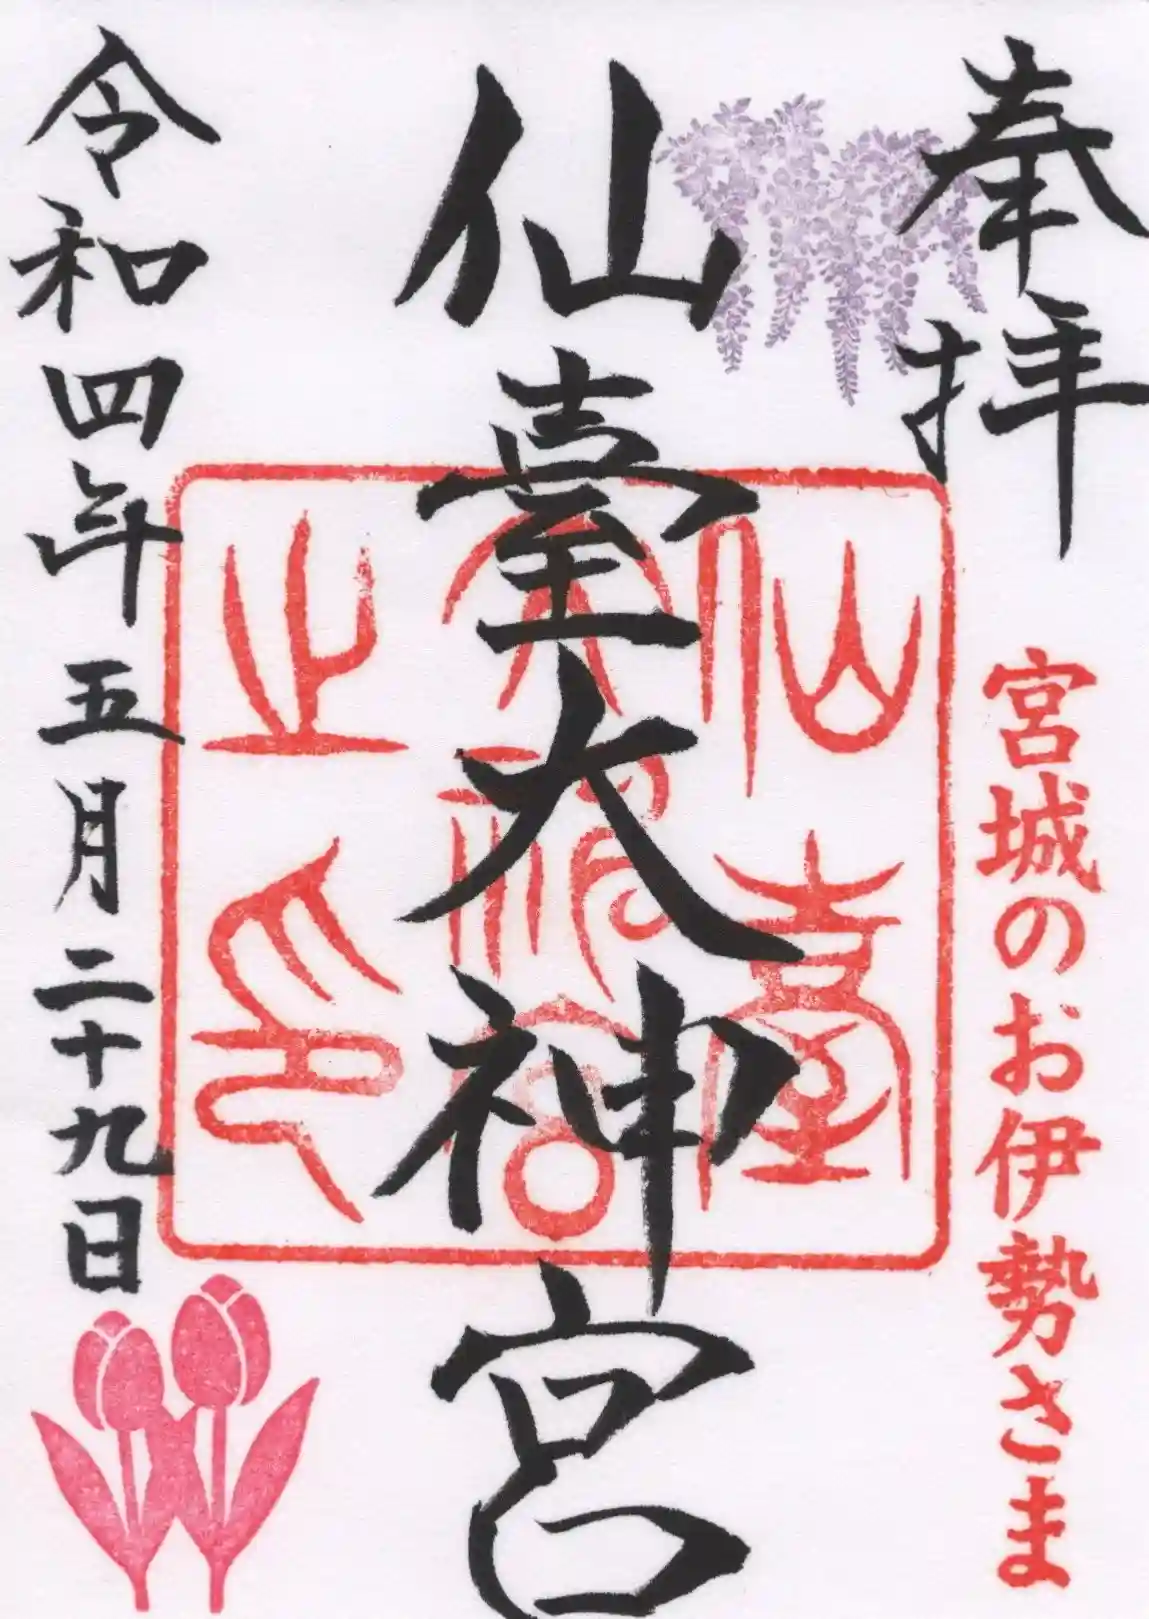 奉拝
宮城のお伊勢さま
仙臺大神宮
仙臺
大神宮
之印
令和四年五月二十九日